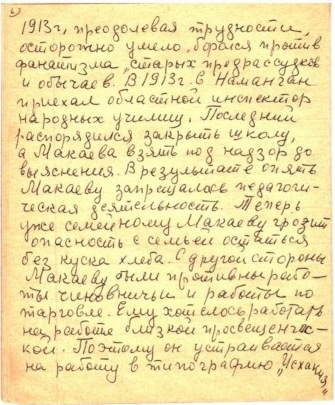 1913г, преодолевая трудности,
осторожно умело, борясь против
фанатизма, старых предрассудков
и обычаев. В 1913г. в Наманган
приехал областной инспектор
народных училищ. Последний
распорядился закрыть школу,
а Макаева взять под надзор до
выяснения. В результате опять
Макаеву запреталось педагоги-
ческая деятельность. Теперь
уже семейному Макаеву грозит
опасность с семьей остаться
без куска хлеба. С другой стороны
Макаеву были противны рабо-
ты чиновничьи и работы по
торговле. Ему хотелось работать
на работе близкой просвещенчес-
кой. Поэтому он устраивается
на работу в типографию „Исхакия"